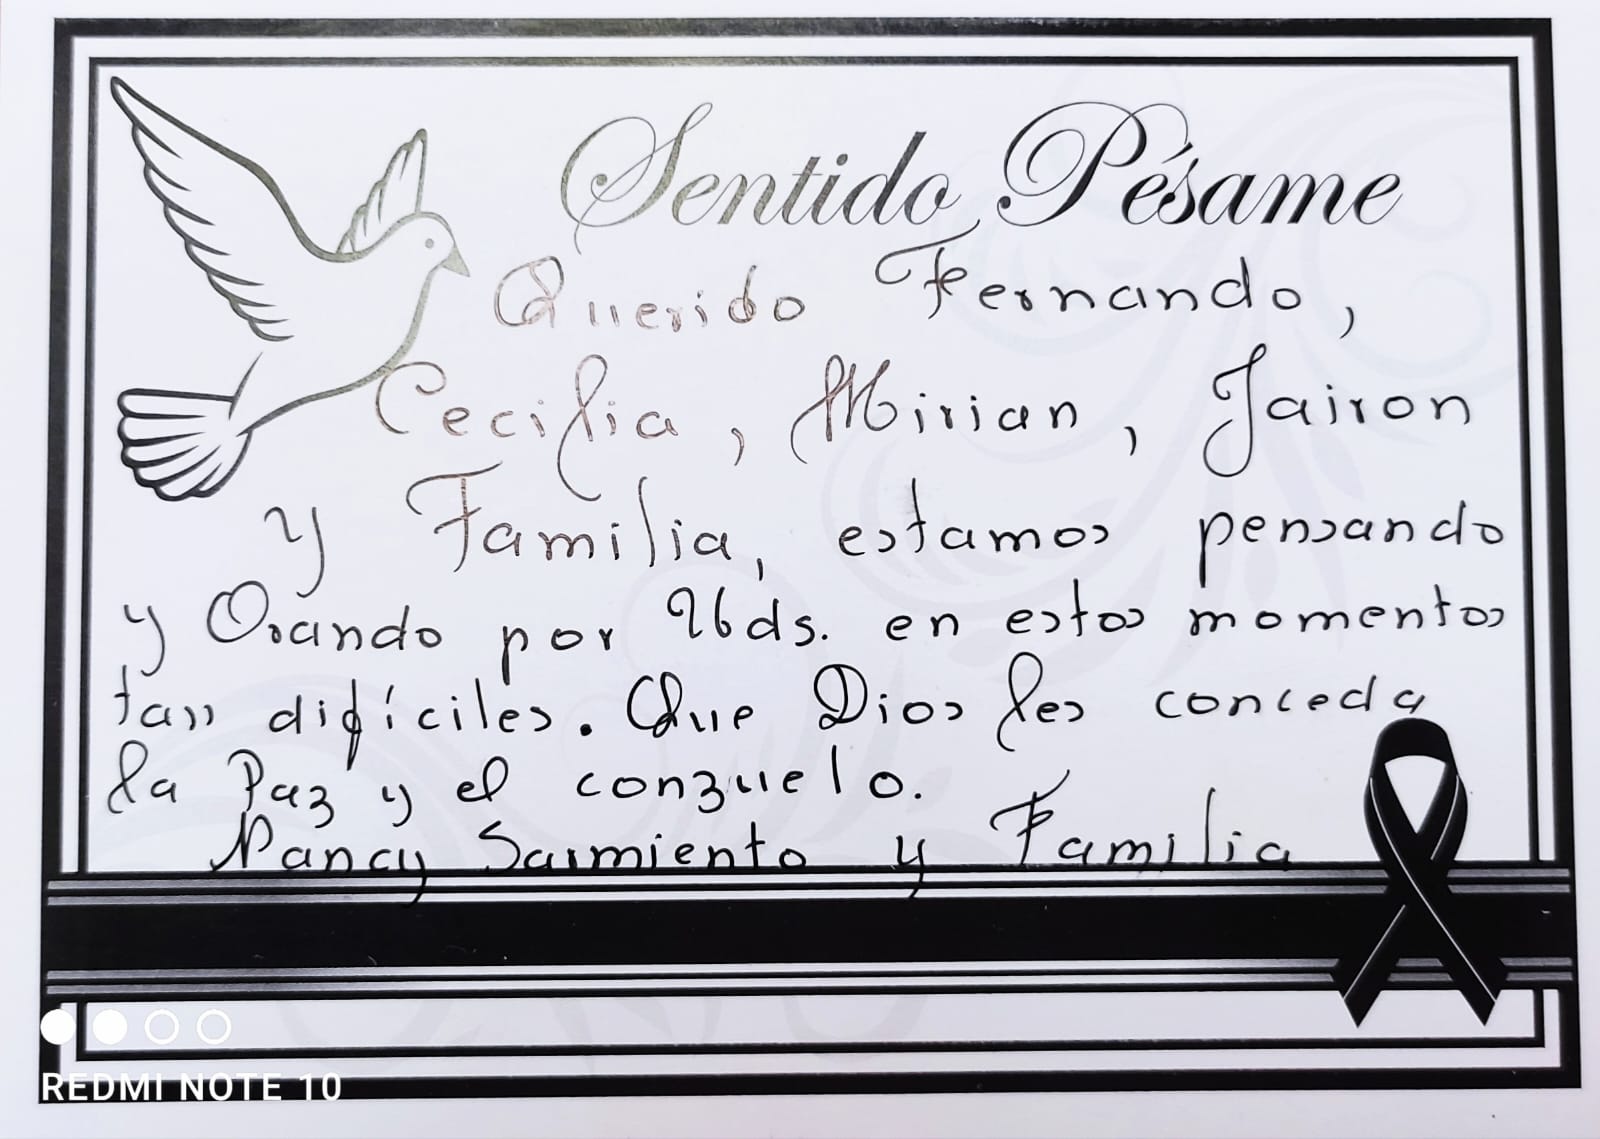 Sentido Pésame
Querido Fernando,
Cecilia, Mirian, Jairon
y Familia, estamos pensando
y Orando por Uds. en estos momentos
tan difíciles. Que Dios les conceda
la Paz y el conzuelo.
Nancy Sarmiento y Familia
REDMI NOTE 10